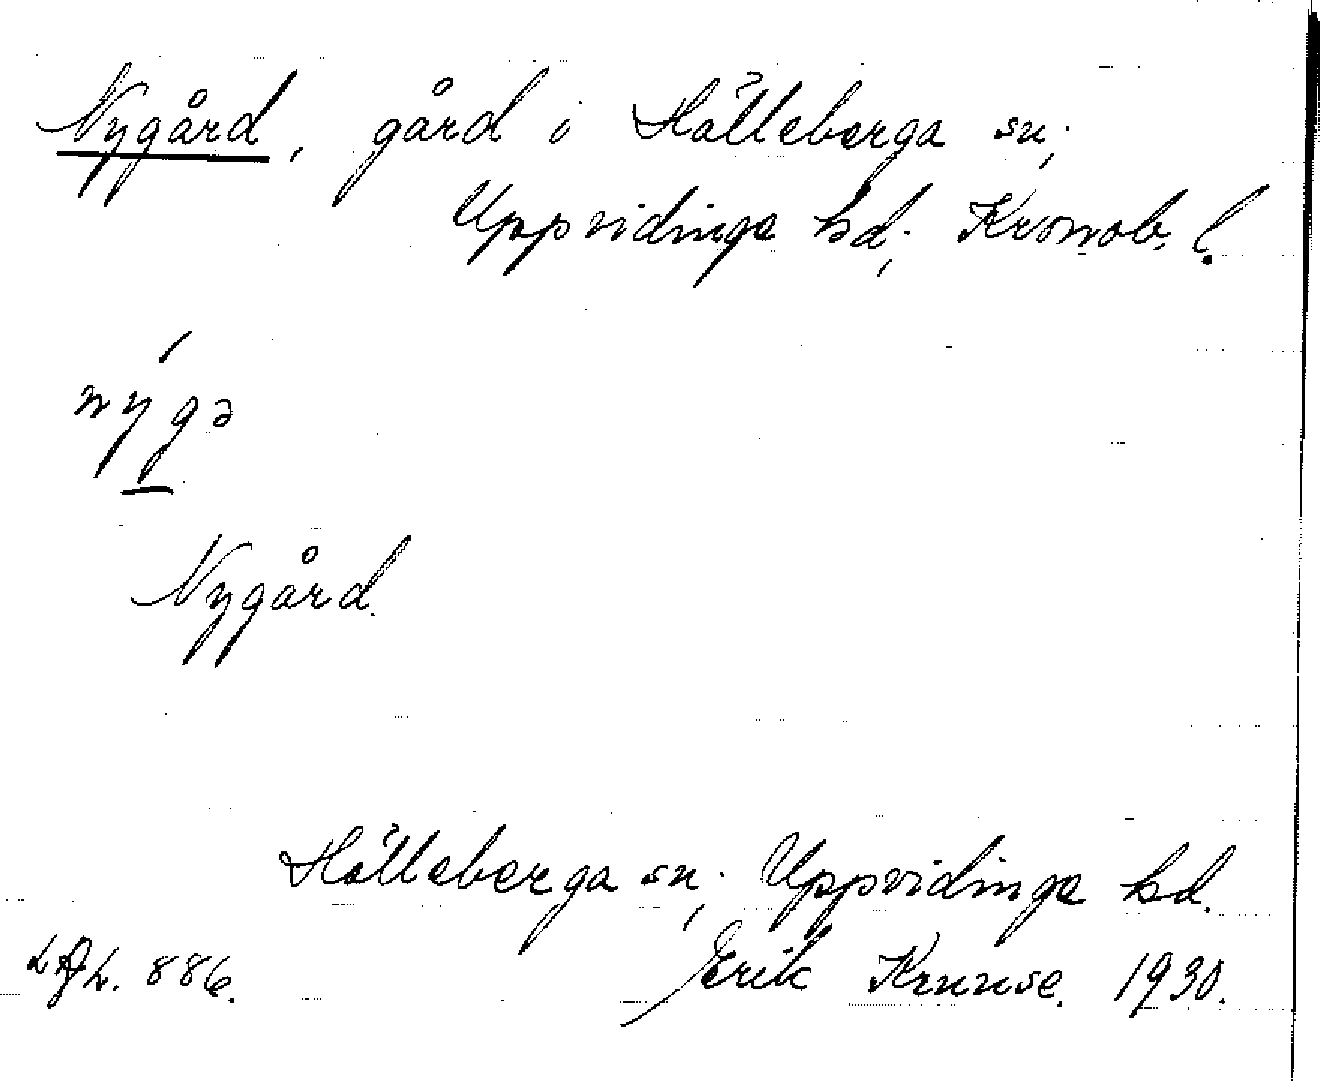 Nygård, gård i Hälleberga sn;
Uppvidinge hd; Kronob. l.
nýgə
Nygård.
Hälleberga sn; Uppvidinge hd.
886. Erik Kruuse. 1930.